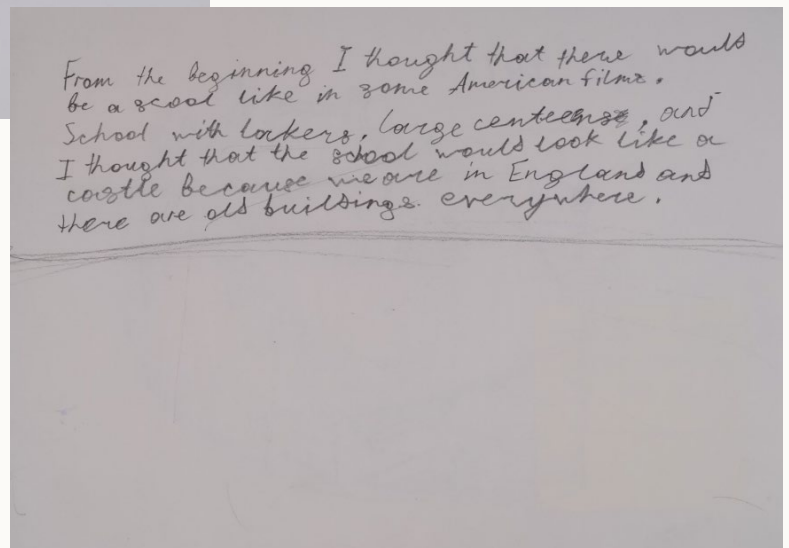 From the beginning I thought that there would
be a scool like in some American films.
School with lockers, large centeens, and
I thought that the school would look like a
castle because we are in England and
there are old buildings everywhere.